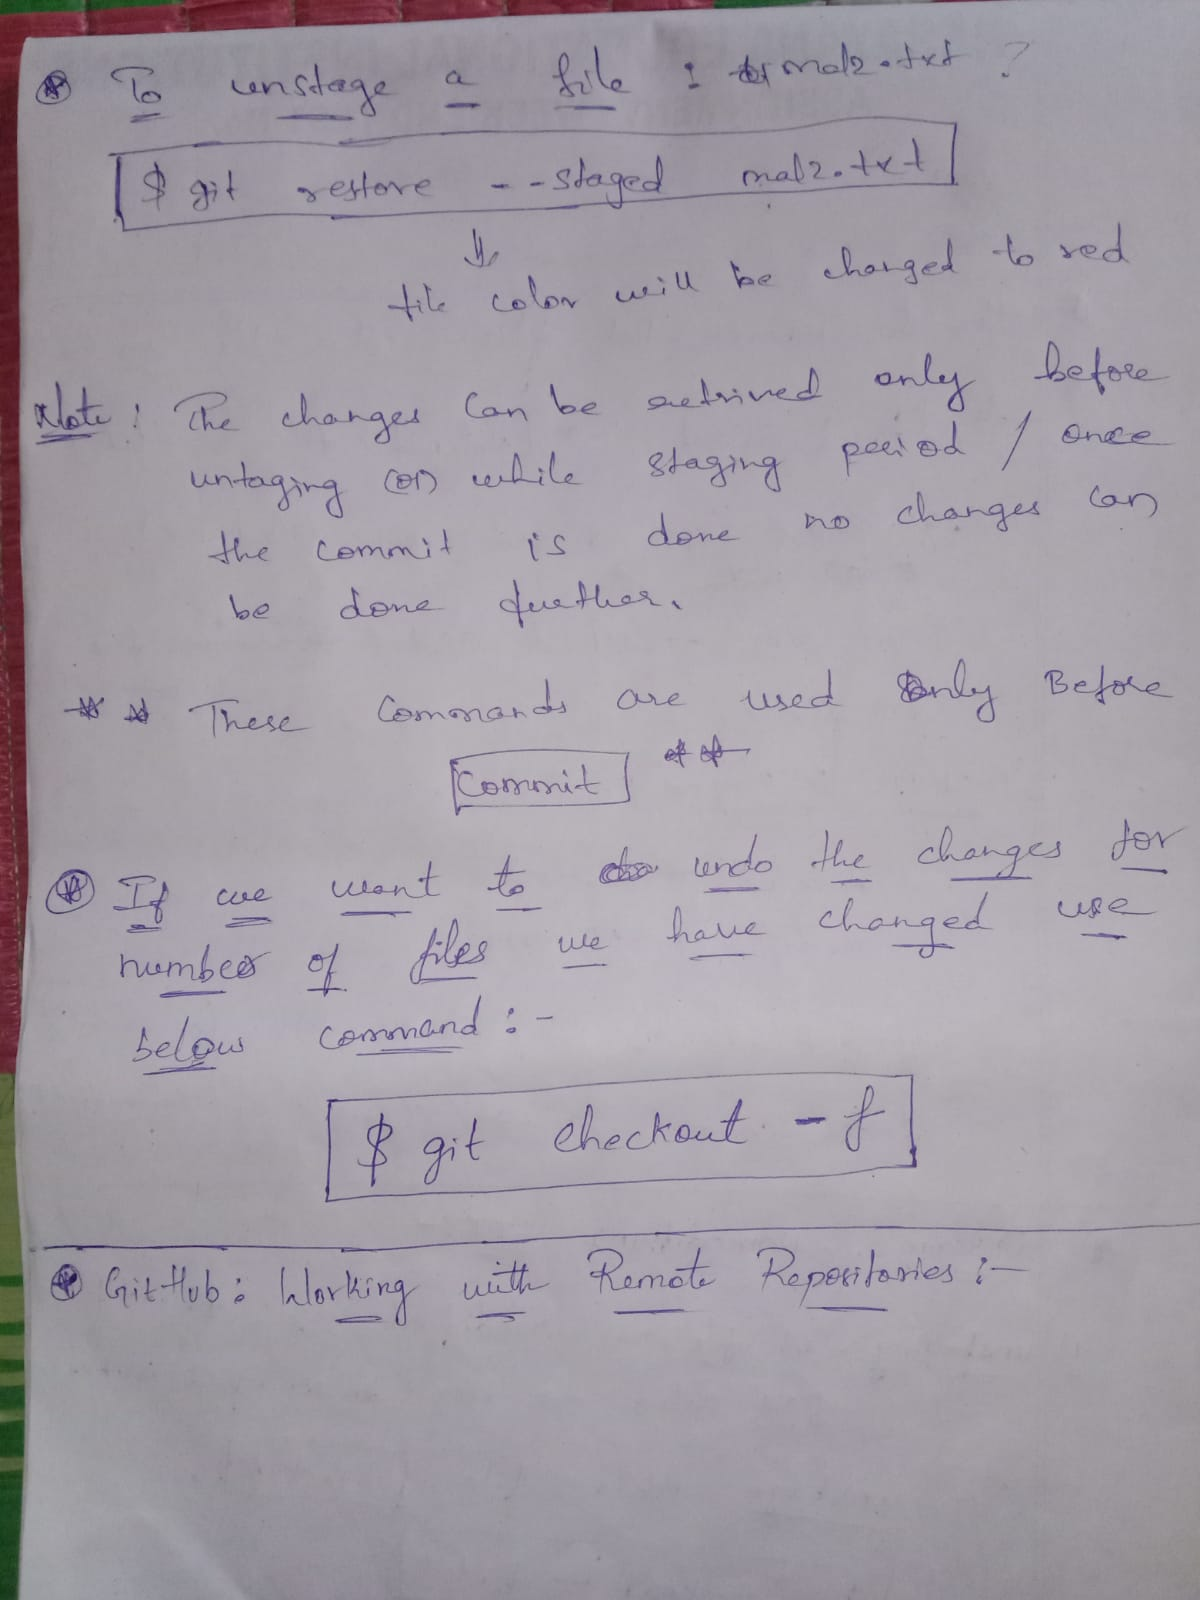 To unstage a file : mal2.txt ?
$ git restore --staged mal2.txt
file color will be changed to red
Note : The changes can be retrived only before
untaging (or) while staging period / once
the commit is done no changes can
be done further.
** These Commands are used Only Before
Commit **
If we want to undo the changes for
number of files we have changed use
below command :-
$ git checkout -f
GitHub : Working with Remote Repositories :-